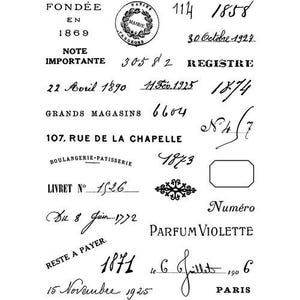 FONDÉE
EN
1869
MAIRIE
114
1858
30 Octobre 1924
NOTE
IMPORTANTE
30582
REGISTRE
22 Avril 1890
11 Fév. 1925
1874
GRANDS MAGASINS
6604
N° 4/7
107, RUE DE LA CHAPELLE
BOULANGERIE-PATISSERIE
1873
LIVRET N° 1526
Numéro
Du 8 Juin 1772
PARFUM VIOLETTE
RESTE A PAYER
1871
le 6 Juillet 1906
15 Novembre 1925
PARIS